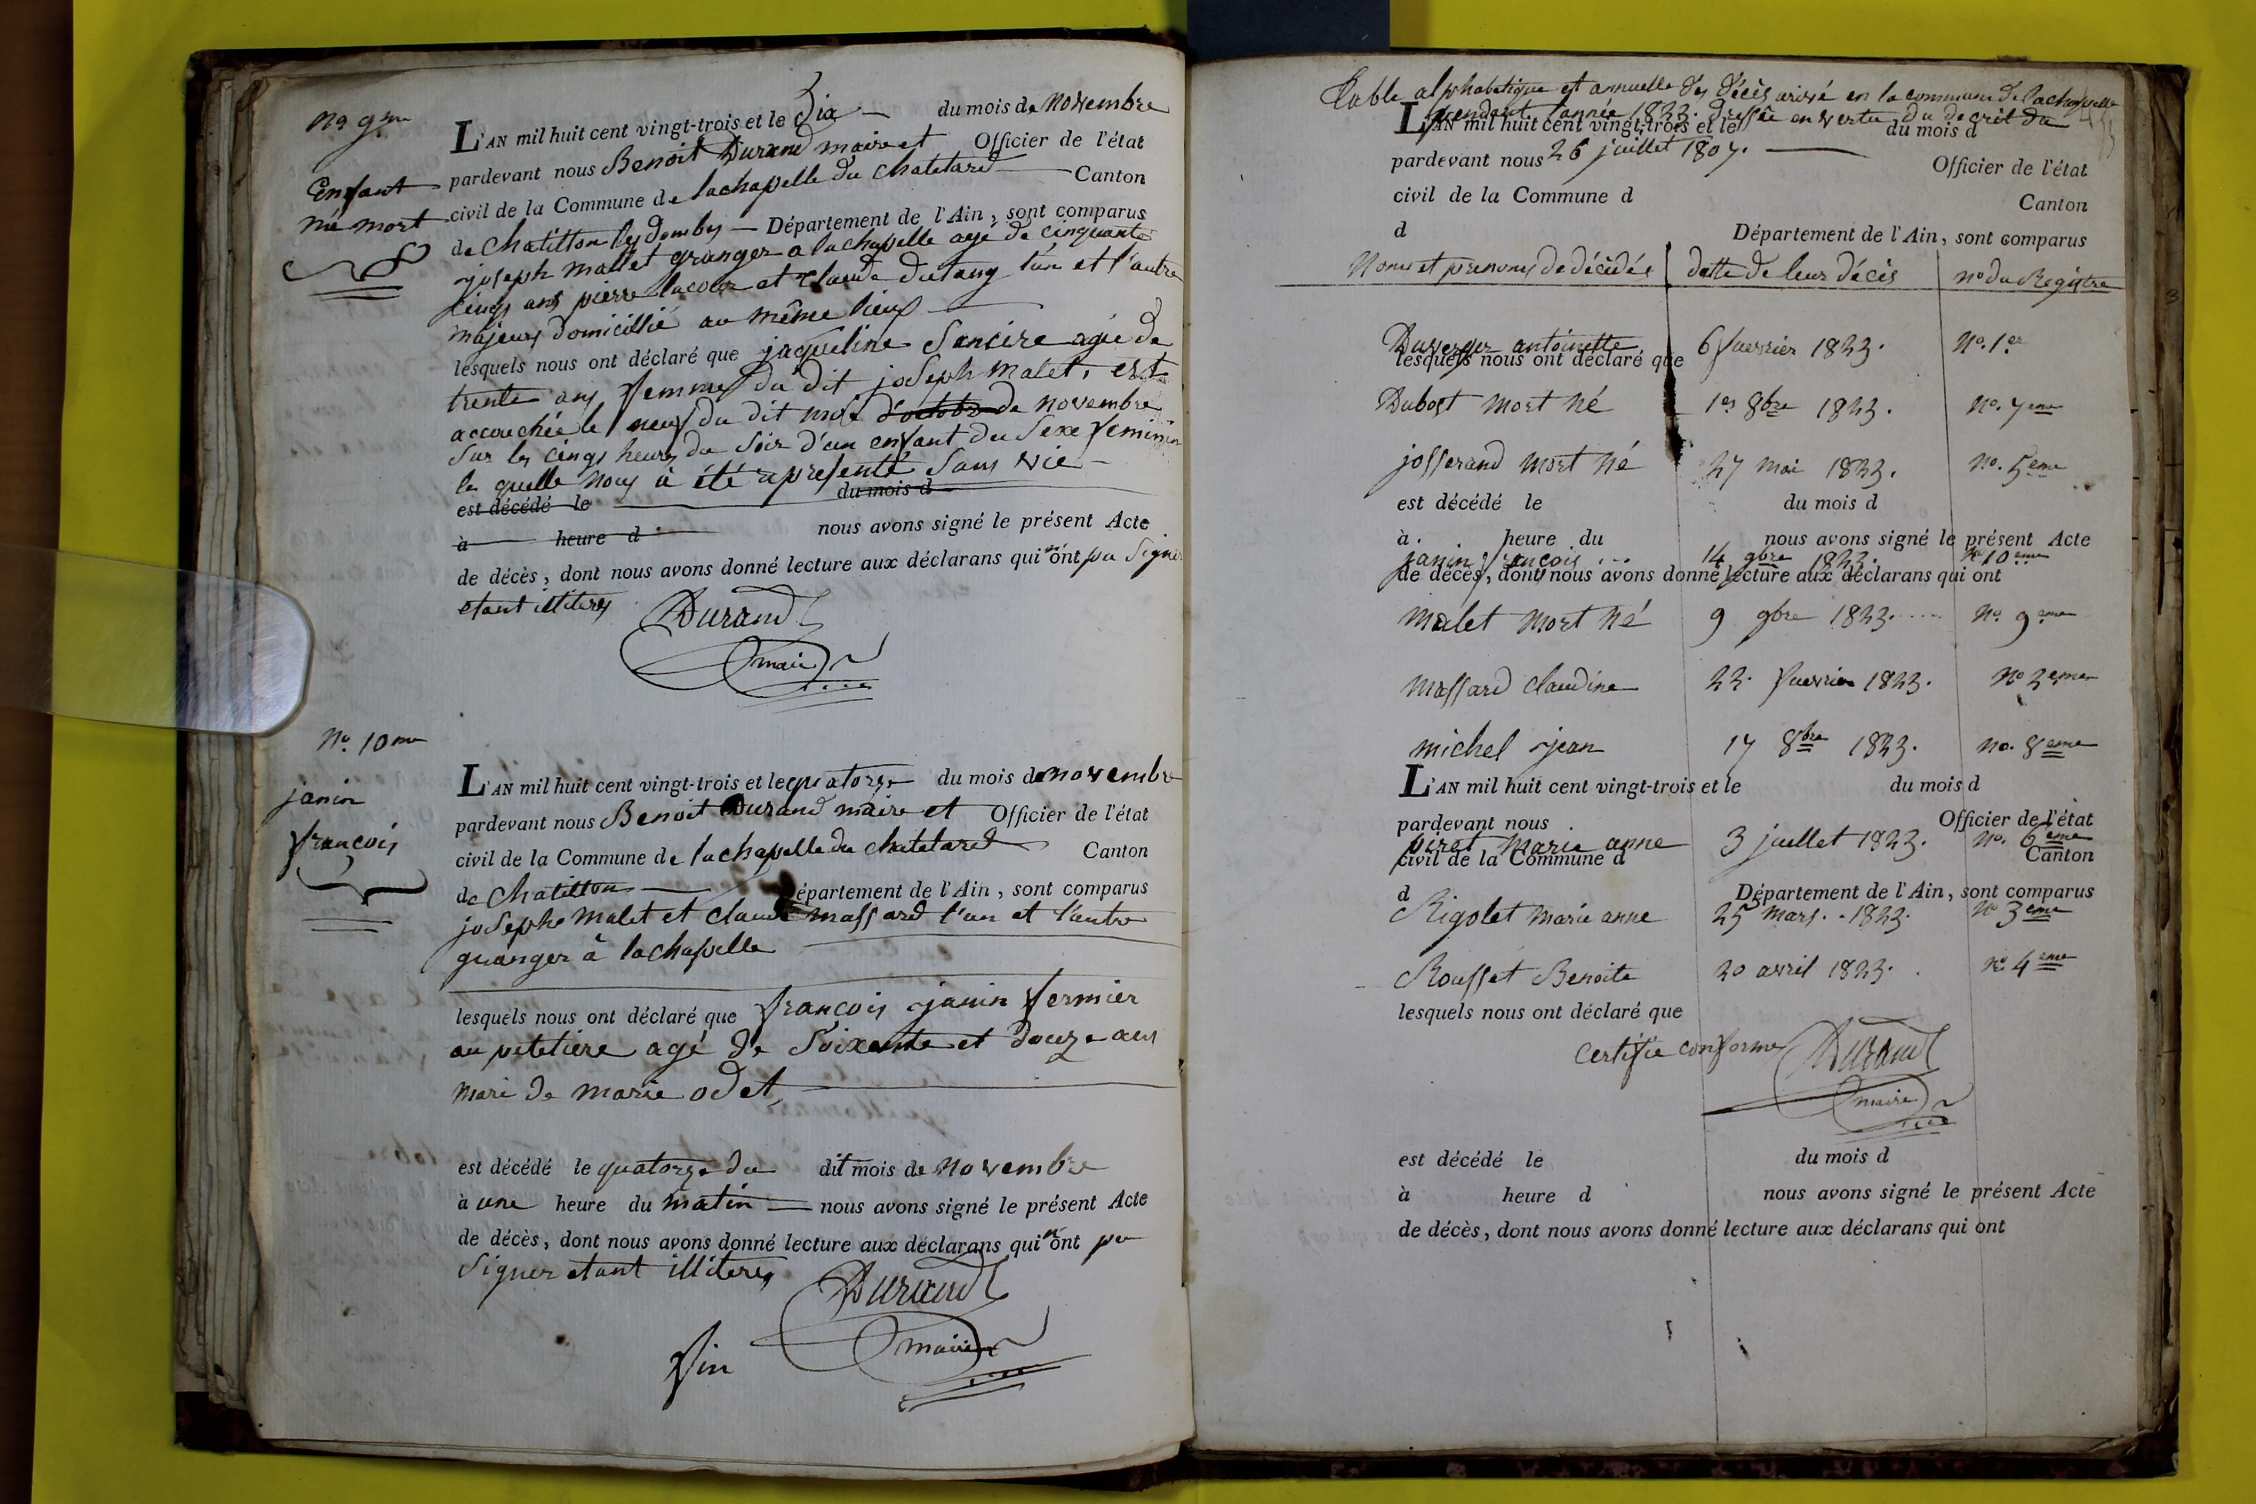 No 9eme
Enfant
né mort
L'AN mil huit cent vingt-trois et le Dix du mois de novembre
pardevant nous Benoit Durand maire et Officier de l'état
civil de la Commune de lachapelle du chatelard Canton
de Chatillon les dombes Département de l'Ain, sont comparus
joseph mallet granger a lachapelle agé de cinquante
cinq ans pierre lacour et claude dutang l'un et l'autre
majeurs domicillié au même lieux
lesquels nous ont déclaré que jaqueline Sancire agée de
trente ans femme du dit joseph malet, est
accouchée le neuf du dit mois d'octobr de novembre
Sur les cinqs heures du Soir d'un enfant du Sexe feminin
la quelle nous à été representé Sans vie
est décédé le du mois d
à heure d nous avons signé le présent Acte
de décès, dont nous avons donné lecture aux déclarans qui n'ont pu Signer
etant illiteres
Durand
maire
No. 10eme
janin
francois
L'AN mil huit cent vingt-trois et le quatorze du mois de novembre
pardevant nous Benoit Durand maire et Officier de l'état
civil de la Commune de lachapelle du chatelard Canton
de Chatillon Département de l'Ain, sont comparus
josephe malet et claude massard l'un et l'autre
granger à lachapelle
lesquels nous ont déclaré que francois janin fermier
au petetiere agé de Soixente et douze ans
mari de marie odet,
est décédé le quatorze du dit mois de novembre
à une heure du matin nous avons signé le présent Acte
de décès, dont nous avons donné lecture aux déclarans qui n'ont pu
Signer etant illiteres
Durand
maire
fin
Table alphabetique et annuelle des décès arivé en la commune de lachapelle
pendant l'année 1823. dressée en vertu du decret du
L'AN mil huit cent vingt-trois et le du mois d
pardevant nous 26 juillet 1807. Officier de l'état
civil de la Commune d Canton
d Département de l'Ain, sont comparus
Noms et prenoms de décédés datte de leur décès no du Registre
Duverger antoinette 6 fuevrier 1823. No. 1er
lesquels nous ont déclaré que
Dubost mort né 1er 8bre 1823. No. 7eme
josserand mort né 27 mai 1823. No. 5eme
est décédé le du mois d
à heure du nous avons signé le présent Acte
janin francois 14 9bre 1823. No 10eme
de décès, dont nous avons donné lecture aux déclarans qui ont
malet mort né 9 9bre 1823. No 9eme
massard claudine 22. fuevrier 1823. No 2eme
michel jean 17 8bre 1823. no. 8eme
L'AN mil huit cent vingt-trois et le du mois d
pardevant nous Officier de l'état
pirot marie anne 3 juillet 1823. No. 6eme
civil de la Commune d Canton
d Département de l'Ain, sont comparus
Rigolet marie anne 25 mars. 1823. No 3eme
Rousset Benoite 20 avril 1823. no. 4eme
lesquels nous ont déclaré que
Certifie conforme Durand
maire
est décédé le du mois d
à heure d nous avons signé le présent Acte
de décès, dont nous avons donné lecture aux déclarans qui ont